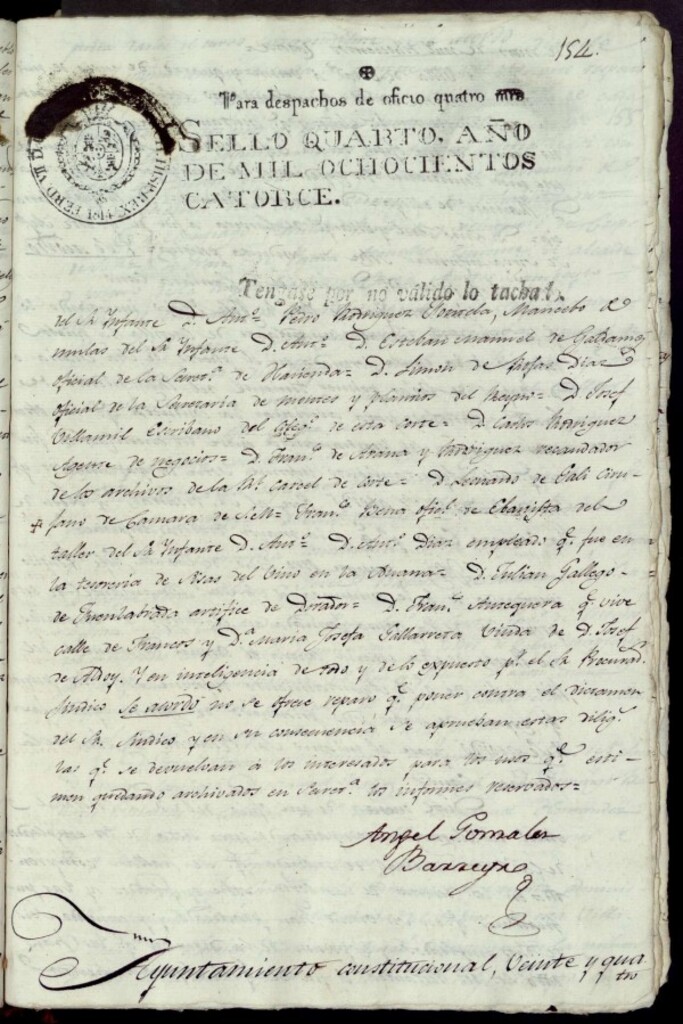 154.
Para despachos de oficio quatro mrs.
SELLO QUARTO, AÑO
DE MIL OCHOCIENTOS
CATORCE.
HISP. REX
FERD. VII D. G.
Tengase por no válido lo tachado.
del Sr. Infante D. Antº. Pedro Rodriguez Mancebo de
mulas del Sr. Infante D. Antº. D. Esteban Manuel de Galdamez
oficial de la Secretª. de Hacienda= D. Simon de Rojas Diaz
oficial de la Secretaría de montes y plantios del Reyno= D. Josef
Villamil Escribano del Colegº. de esta Corte= D. Carlos Rodriguez
Agente de negocios= D. Franº. de Arana y Rodriguez recaudador
de los archivos de la Rl. carcel de corte= D. Leonardo de Gali Ciru-
jano de Camara de S.M= Franº. ofiel. de Ebanista del
taller del Sr. Infante D. Antº. D. Antº. Diaz empleado q.e fue en
la tesoreria de Sisas del Vino en la Aduana= D. Julian Gallego
de Fuenlabrada artifice de Dorador= D. Franº. Antequera q.e vive
calle de Francos y Dª. Maria Josefa Gallarreta Viuda de D. Josef
de Aldoy. Y en inteligencia de todo y de lo expuesto pr. el Sr. Procurador
Sindico Se acordó no se ofrece reparo q.e poner contra el dictamen
del Sr. Sindico y en su consecuencia se aprueban estas diligs.
las q.e se devuelvan á los interesados para los usos q.e esti-
men quedando archivados en Secretª. los informes reservados=
Angel Gonzalez
Barreyro
Ayuntamiento constitucional, Veinte y qua
tro